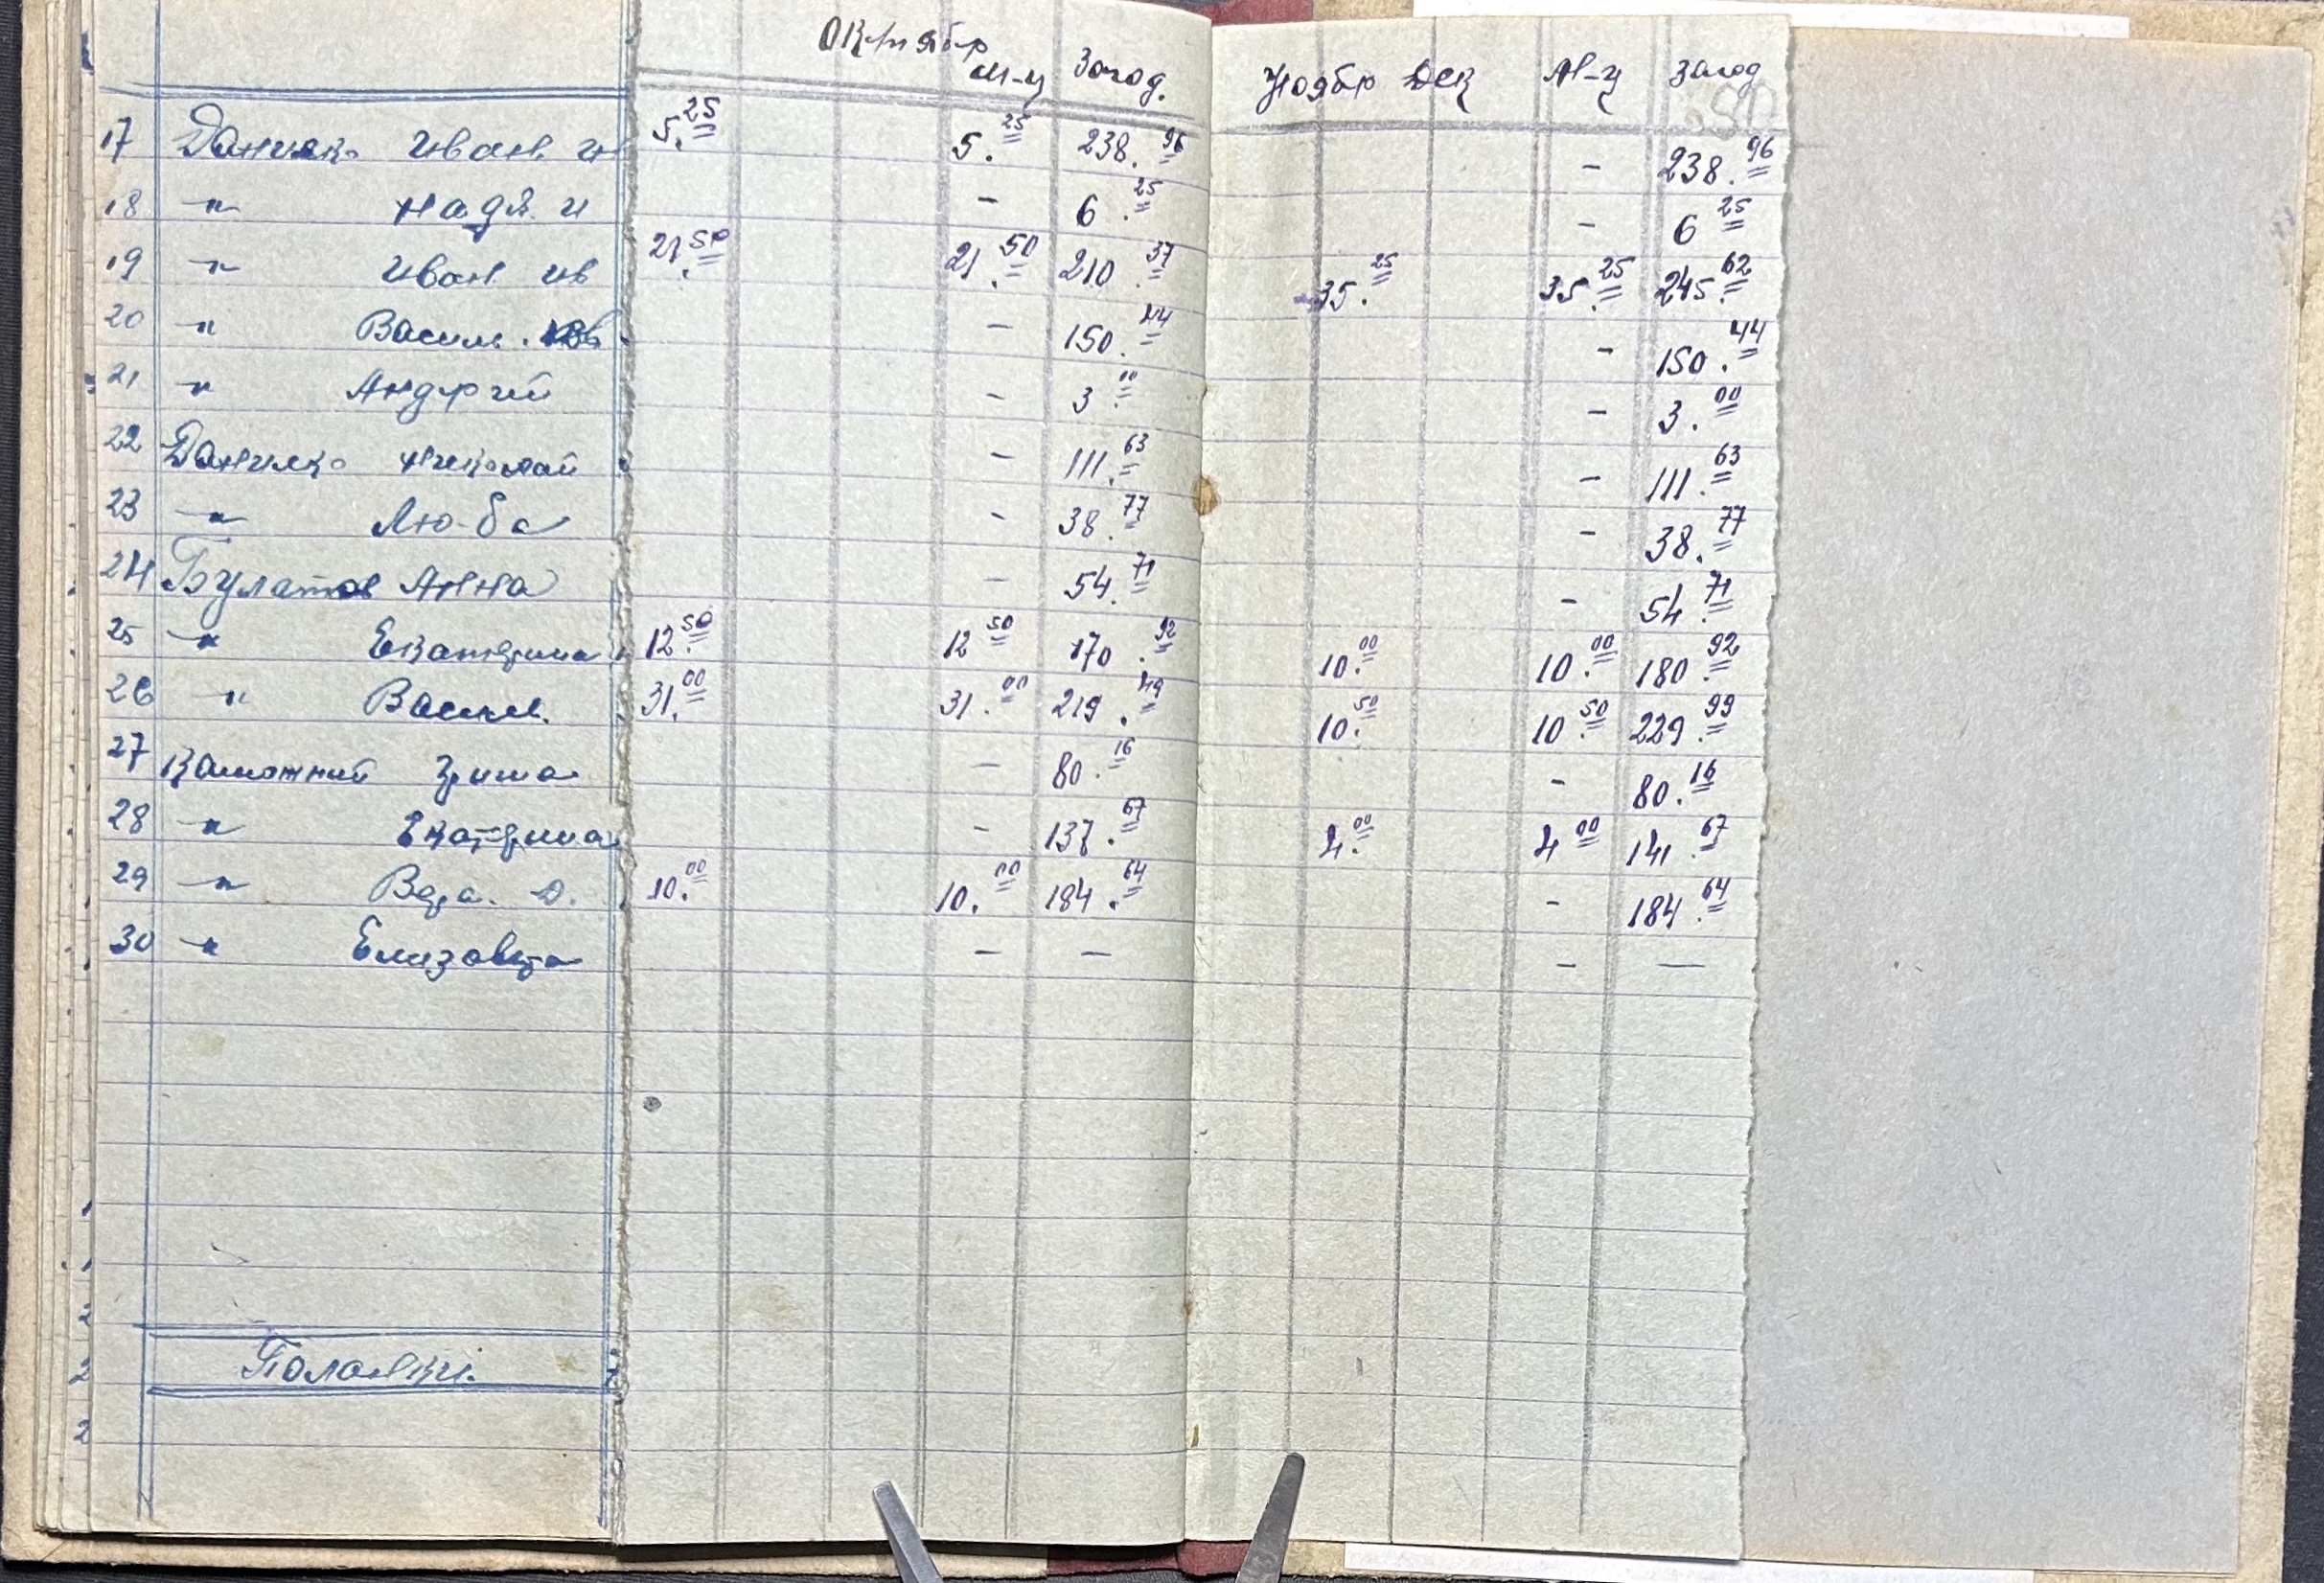 Октябр м-ц За год. Ноябр Дек М-ц За год
17 Данилко Иван И 5.25 5.25 238.96 - 238.96
18 " Надя И - 6.25 - 6 25
19 " Иван Ив 21.50 21.50 210.37 35.25 35.25 245.62
20 " Васил. - 150.44 - 150.44
21 " Андрий - 3 00 - 3.00
22 Данилко Николай - 111.63 - 111.63
23 " Люба - 38.77 - 38.77
24 Булатов Анна - 54.71 - 54 71
25 " Екатерина 12.50 12 50 170.92 10.00 10.00 180.92
26 " Васил. 31.00 31.00 219.49 10.50 10.50 229.99
27 - 80.16 - 80.16
28 " Екатерина - 137.67 4.00 4 00 141.67
29 " Вера. Д. 10.00 10.00 184.64 - 184.64
30 " Елизавета - — - —